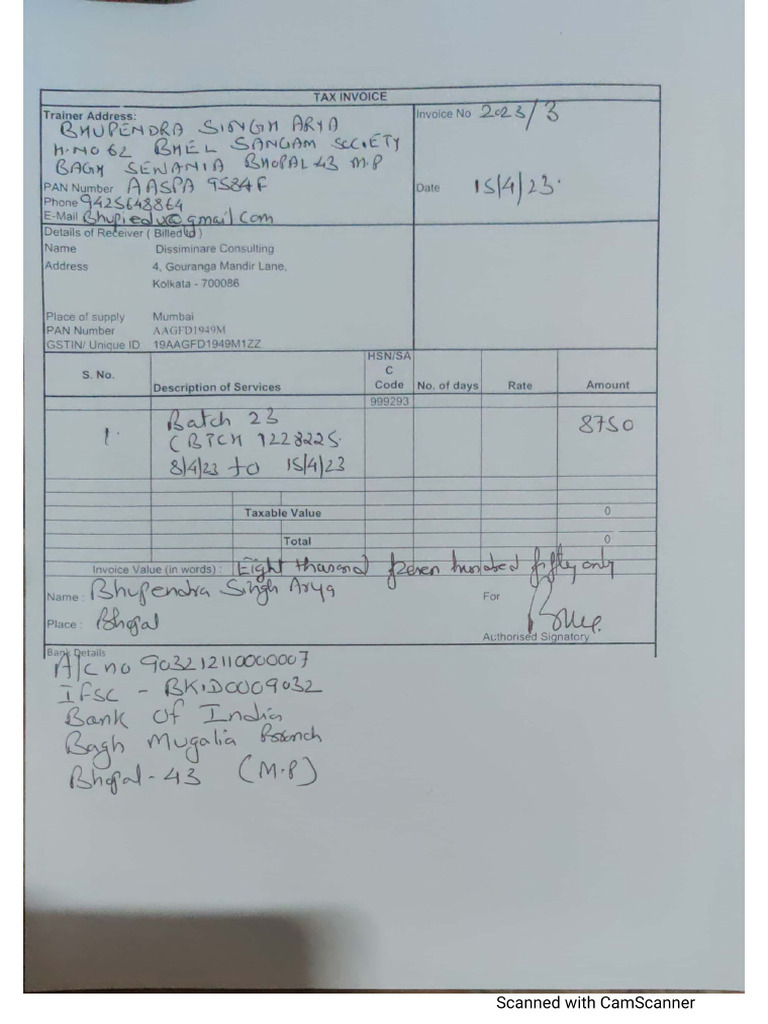 TAX INVOICE
Trainer Address:
BHUPENDRA SINGH ARYA
H.NO 62 BHEL SANGAM SOCIETY
BAGH SEWANIA BHOPAL 43 M.P
PAN Number AASPA 9584F
Phone 9425648864
E-Mail Bhupiedux@gmail.com
Invoice No 2023/3
Date 15/4/23.
Details of Receiver ( Billed to )
Name Dissiminare Consulting
Address 4, Gouranga Mandir Lane,
Kolkata - 700086
Place of supply Mumbai
PAN Number AAGFD1949M
GSTIN/ Unique ID 19AAGFD1949M1ZZ
S. No. Description of Services HSN/SA C Code No. of days Rate Amount
999293
1. Batch 23 8750
CBTCH 1228225.
8/4/23 to 15/4/23
Taxable Value 0
Total 0
Invoice Value (in words) : Eight thousand seven hundred fifty only
Name : Bhupendra Singh Arya
For
Place : Bhopal
Authorised Signatory
Bank Details
A/c no 903212110000007
IFSC - BKID0009032
Bank Of India
Bagh Mugalia Branch
Bhopal - 43 (M.P)
Scanned with CamScanner